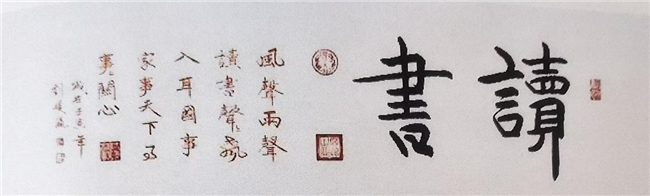 讀書
風聲雨聲
讀書聲聲
入耳國事
家事天下事
事關心
歲在壬寅年